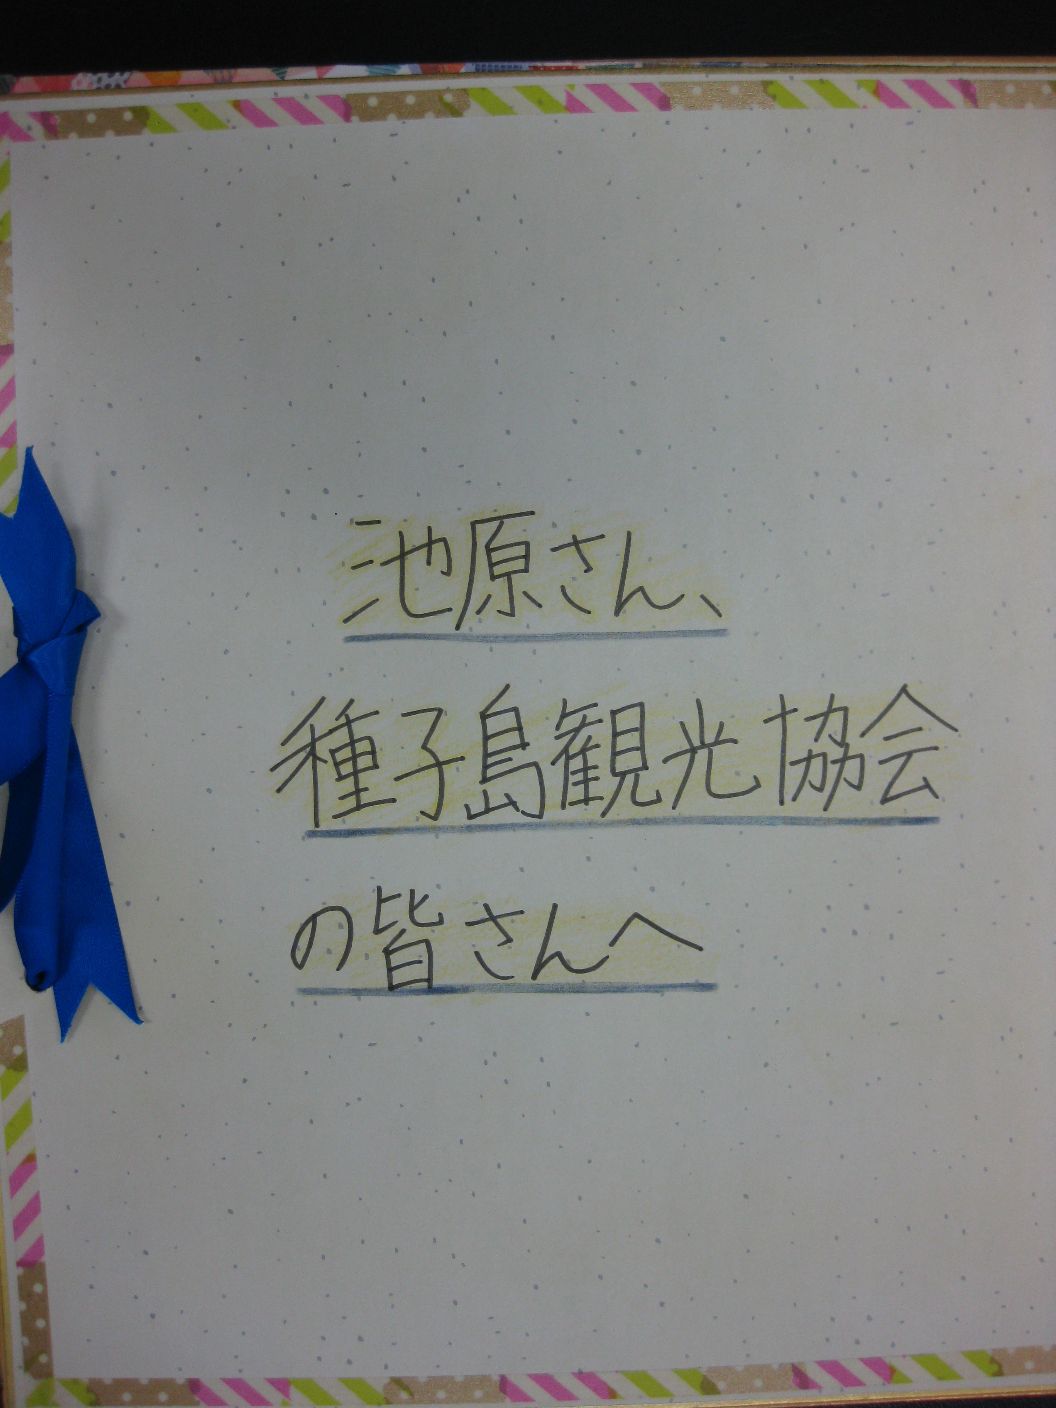 池原さん、
種子島観光協会
の皆さんへ